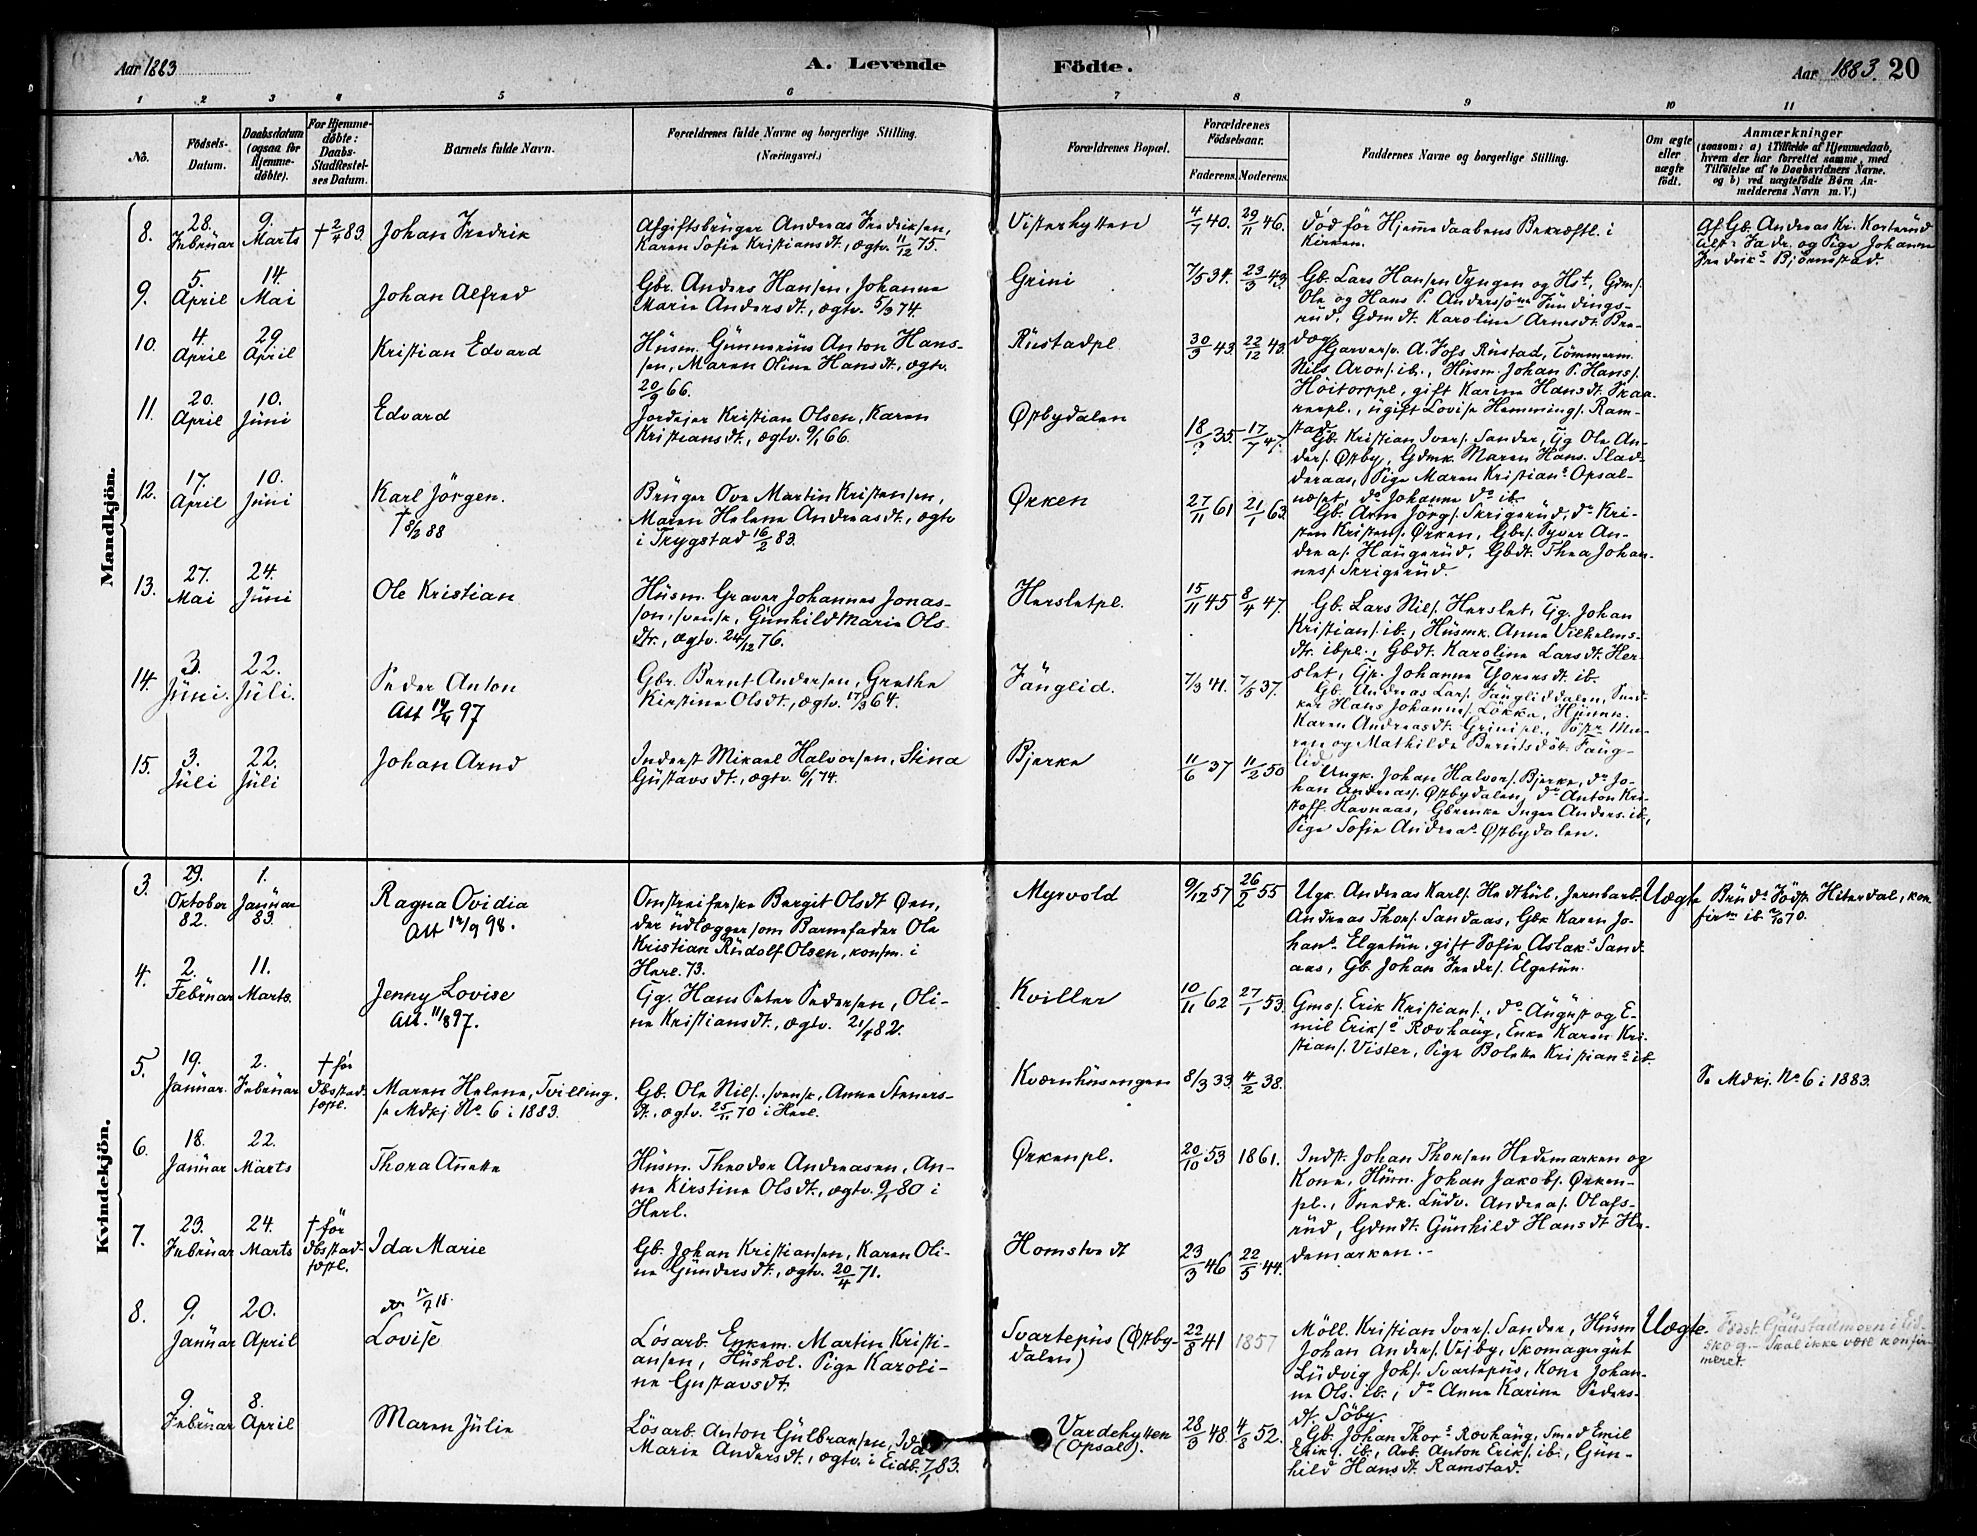 Aar 1883
A. Levende
Födte.
Aar 1883. 20
1 2 3 4 5 6 7 8 9 10 11
No.
Födsels-
Datum.
Daabsdatum
(ogsaa for
Hjemme-
döbte).
For Hjemme-
döbte:
Daabs-
Stadfestel-
ses Datum.
Barnets fulde Navn.
Forældrenes fulde Navne og borgerlige Stilling.
(Næringsvei.)
Forældrenes Bopæl.
Forældrenes
Födselsaar.
Faderens. Moderens.
Faddernes Navne og borgerlige Stilling.
Om ægte
eller
uægte
født.
Anmærkninger
(saasom: a) i Tilfælde af Hjemmedaab,
hvem der har forrettet samme, med
Tilföielse af to Daabsvidners Navne.
og b) ved uægtefödte Börn An-
melderens Navn m. V.)
Mandkjön.
8. 28. Februar 9. Marts † 2/4 83. Johan Fredrik
Afgiftsbrüger Andreas Fredriksen,
Karen Sofie Kristiansdt., ægtv. 11/12 75.
Visterhytten 4/7 40. 29/11 46.
Död för Hjemmedaabens Bekræftl. i
Kirken.
Af Gb. Andreas Kr. Kosterüd
tilst: Fadr. og Pige Johanne
Fredriks Bjørnstad.
9. 5. April 14. Mai Johan Alfred
Gbr. Anders Hansen, Johanne
Marie Andersdt., ægtv. 5/3 74.
Grini 7/5 34. 23/3 43.
Gb. Lars Hansen Dyngen og Hst, Gdms.
Ole og Hans P. Anderssönn Fündings-
rüd, Gdmdt. Karoline Arnesdt. Bre-
dæg.
10. 4. April 29. April Kristian Edvard
Hüsm. Günnerius Anton Hans-
sen, Maren Oline Hansdt., ægtv.
20/9 66.
Rüstadpl. 30/3 43. 22/12 43.
Garversv. A. Jofs Rüstad, Tömmerm.
Nils Arons. ib., Hüsm. Johan P. Hans.
Höitorppl., gift Karine Hansdt. Skaa-
repl., ügift Lovise Hemmings. Ram-
stad
11. 20. April 10. Jüni Edvard
Jordejer Kristian Olsen, Karen
Kristiansdt., ægtv. 9/1 66.
Østbydalen 18/2 35. 17/7 47.
Gb. Kristian Ivers. Sander, Tjg Ole An-
ders. Østby, Gdmk. Maren Hans. Slad-
deraas, Pige Maren Kristians. Opsal-
næset, do Johanne do ib.
12. 17. April 10. Jüni Karl Jörgen.
† 8/2 88
Brüger Ove Martin Kristensen,
Maren Helene Andreasdt., ægtv
i Trygstad 16/2 83.
Ørken 27/11 61 21/1 63.
Gb. Arne Jörgs. Skrigerüd, do Kri-
sten Kristens. Ørken, Gbrs. Syver An-
dreas. Haugerüd, Gbdt. Thea Johan-
ness. Skrigerüd.
13. 27. Mai 24. Jüni Ole Kristian
Hüsm. Graver Johannes Jonas-
son, svensk, Günhild Marie Ols-
dtr., ægtv. 24/12 76.
Hersletpl. 15/11 45 8/4 47.
Gb. Lars Nils. Herslet, Tjg. Johan
Kristians. ib., Hüsmk. Anne Vilhelms-
dt. ibpl., Gbdt. Karoline Larsdt. Her-
slet, Tjp. Johanne Thoresdt. ib.
14. 3. Jüni. 22. Jüli. Peder Anton
Att 14/4 97
Gbr. Bernt Andersen, Grethe
Kirstine Olsdt., ægtv. 17/3 64.
Fänglid. 7/3 41. 7/5 37.
Gb. Andreas Lars. Fängliddalen, Sned-
ker Hans Johannes. Lökka, Hüsmk.
Karen Andreasdt. Grinipl., Søstr. Ma-
ren og Mathilde Berntsdöt. Fäng-
lid.
15. 3. Jüli 22. Jüli Johan Arnd
Inderst Mikael Halvorsen, Stina
Güstavsdt., ægtv. 6/1 74.
Bjerke 11/6 37 11/2 50
Ungk. Johan Halvors. Bjerke, do Jo-
han Andreas. Østbydalen, do Anton Kri-
stoff. Havnaas, Gbrenke Inger Anders. ib.,
Pige Sofie Andreas. Østbydalen.
Kvindekjön.
3. 29. Oktober 82. 1. Januar 83. Ragna Ovidia
Att 14/9 98.
Omstreiferske Bergit Olsdt Øen,
der üdlægger som Barnefader Ole
Kristian Rüdolf Olsen, konfm. i
Herl. 73.
Myrvold 9/12 57 26/2 55
Ugk. Andreas Karls. Hedthül, Jernbarb.
Andreas Thors. Sandaas, Gbk Karen Jo-
hans. Elgetün, gift Sofie Aslaks. Sand-
aas, Gb. Johan Fredrs. Elgetün.
Uægte
Brüds. Födst. Hiterdal, kon-
firm ib. 2/10 70.
4. 2. Februar 11. Marts. Jenny Lovise
Att. 11/8 97.
Tjg. Hans Peter Pedersen, Oli-
ne Kristiansdt., ægtv. 21/4 82.
Kviller 10/11 62 27/1 53.
Gms. Erik Kristians., do August og E-
mil Eriks. Rovhaug, Enke Karen Kri-
stians. Vister, Pige Bolette Kristians. ib.
5. 19. Januar. 2. Februar † før Dbstad-fæstl. Maren Helene, Tvilling,
se Mdkj No. 6 i 1883.
Gb. Ole Nils., svensk, Anne Steners-
dt., ægtv. 25/11 70 i Herl.
Kværnhüsengen 8/3 33. 4/2 38.
Se Mdkj. No 6 i 1883.
6. 18. Januar 22. Marts Thora Anette
Hüsm. Theodor Andreasen, An-
ne Kirstine Olsdt., ægtv. 9/1 80 i
Herl.
Ørkenpl. 20/10 53 1861.
Indst. Johan Thorsen Hedemarken og
Kone, Hüsm. Johan Jakobs. Ørken-
pl., Snedk. Lüdv. Andreas. Olafs-
rüd, Gdmdt. Günhild Hansdt He-
demarken.
7. 23. Februar 24. Marts † før Dbstad-fæstl. Ida Marie
Gb. Johan Kristiansen, Karen Oli-
ne Gündersdt., ægtv. 20/4 71.
Homstvedt 23/3 46 22/5 44.
8. 9. Januar 20. April Lovise
Lösarb. Enkem. Martin Kristi-
ansen, Hüshol. Pige Karoli-
ne Gustavsdt.
Svartepüs (Østby-
dalen) 22/8 41 1857
Möll. Kristian Ivers. Sander, Hüsm
Johan Anders. Vejby, Skomagergut
Lüdvig Johs. Svartepüs, Kone Johan-
ne Ols. ib., do Anne Karine Peders-
dt. Söby.
Uægte.
Födst. Gaustadmoen i Eid-
skog. Skal ikke være konfir-
meret.
9. Februar 8. April Maren Jülie
Lösarb. Anton Gülbransen, Ida
Marie Andersdt., ægtv. i Eidb. 7/1 83.
Vardehytten
(Opsal). 28/3 48. 4/8 52.
Gb. Johan Thors. Rovhaug, Smed Emil
Eriks. ib., Arb. Anton Eriks. ib., Gün-
hild Hansdt. Ramstad.